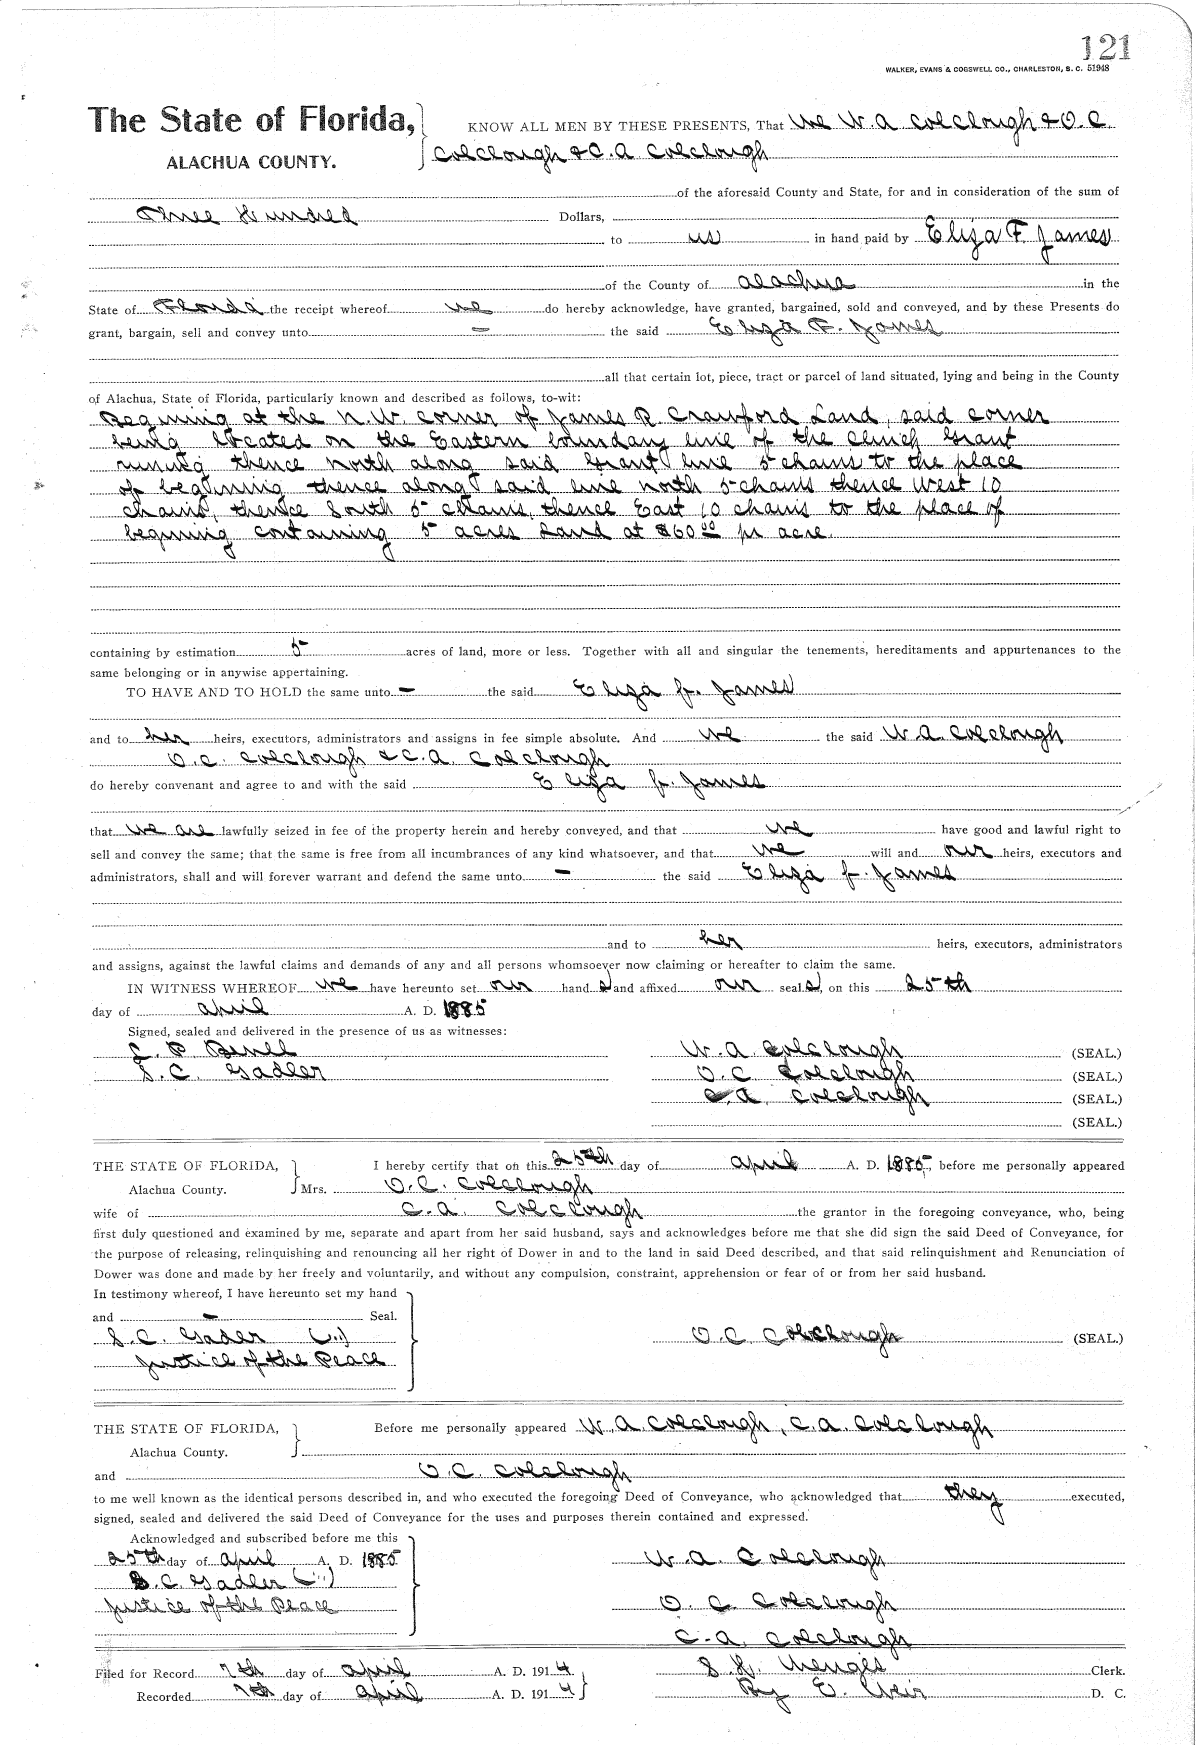 121
WALKER, EVANS & COGSWELL CO., CHARLESTON, S. C. 51948
The State of Florida,
ALACHUA COUNTY.
KNOW ALL MEN BY THESE PRESENTS, That We W. A Colclough & O. C
Colclough & C. A Colclough
of the aforesaid County and State, for and in consideration of the sum of
Three Hundred Dollars,
to us in hand paid by Eliza F. James
of the County of Alachua in the
State of Florida the receipt whereof we do hereby acknowledge, have granted, bargained, sold and conveyed, and by these Presents do
grant, bargain, sell and convey unto - the said Eliza F. James
all that certain lot, piece, tract or parcel of land situated, lying and being in the County
of Alachua, State of Florida, particularly known and described as follows, to-wit:
Begining at the N.W. corner of James R. Crawford Land, said corner
being located on the Eastern boundary line of the Clinch Grant
runing thence north along said Grant line 5 chains to the place
of begining thence along said line north 5 chains thence West 10
chains, thence South 5 chains, thence East 10 chains to the place of
begining containing 5 acres Land at $60 00 pr acre.
containing by estimation 5 acres of land, more or less. Together with all and singular the tenements, hereditaments and appurtenances to the
same belonging or in anywise appertaining.
TO HAVE AND TO HOLD the same unto - the said Eliza F. James
and to her heirs, executors, administrators and assigns in fee simple absolute. And we the said W. A. Colclough
O. C. Colclough & C. A. Colclough
do hereby convenant and agree to and with the said Eliza F. James
that we are lawfully seized in fee of the property herein and hereby conveyed, and that we have good and lawful right to
sell and convey the same; that the same is free from all incumbrances of any kind whatsoever, and that we will and our heirs, executors and
administrators, shall and will forever warrant and defend the same unto - the said Eliza F. James
and to her heirs, executors, administrators
and assigns, against the lawful claims and demands of any and all persons whomsoever now claiming or hereafter to claim the same.
IN WITNESS WHEREOF we have hereunto set our hand s and affixed our seal s, on this 25th
day of April A. D. 1885
Signed, sealed and delivered in the presence of us as witnesses:
W. A. Colclough (SEAL.)
S. C. Gadler O. C Colclough (SEAL.)
C A. Colclough (SEAL.)
(SEAL.)
THE STATE OF FLORIDA,
Alachua County.
I hereby certify that on this 25th day of April A. D. 1885, before me personally appeared
Mrs. O. C. Colclough
wife of C. A. Colclough the grantor in the foregoing conveyance, who, being
first duly questioned and examined by me, separate and apart from her said husband, says and acknowledges before me that she did sign the said Deed of Conveyance, for
the purpose of releasing, relinquishing and renouncing all her right of Dower in and to the land in said Deed described, and that said relinquishment and Renunciation of
Dower was done and made by her freely and voluntarily, and without any compulsion, constraint, apprehension or fear of or from her said husband.
In testimony whereof, I have hereunto set my hand
and - Seal.
S. C. Gader (...)
Justice of the Peace
O. C Colclough (SEAL.)
THE STATE OF FLORIDA,
Alachua County.
Before me personally appeared W. A. Colclough, C. A. Colclough
and O. C. Colclough
to me well known as the identical persons described in, and who executed the foregoing Deed of Conveyance, who acknowledged that they executed,
signed, sealed and delivered the said Deed of Conveyance for the uses and purposes therein contained and expressed.
Acknowledged and subscribed before me this
25th day of April A. D. 1885
S. C. Gadler (...)
Justice of the Peace
W. A. Colclough
O. C. Colclough
C. A. Colclough
Filed for Record 7th day of April A. D. 1914
Recorded 7th day of April A. D. 1914
S. H. Wienges Clerk.
By E. Weir D. C.